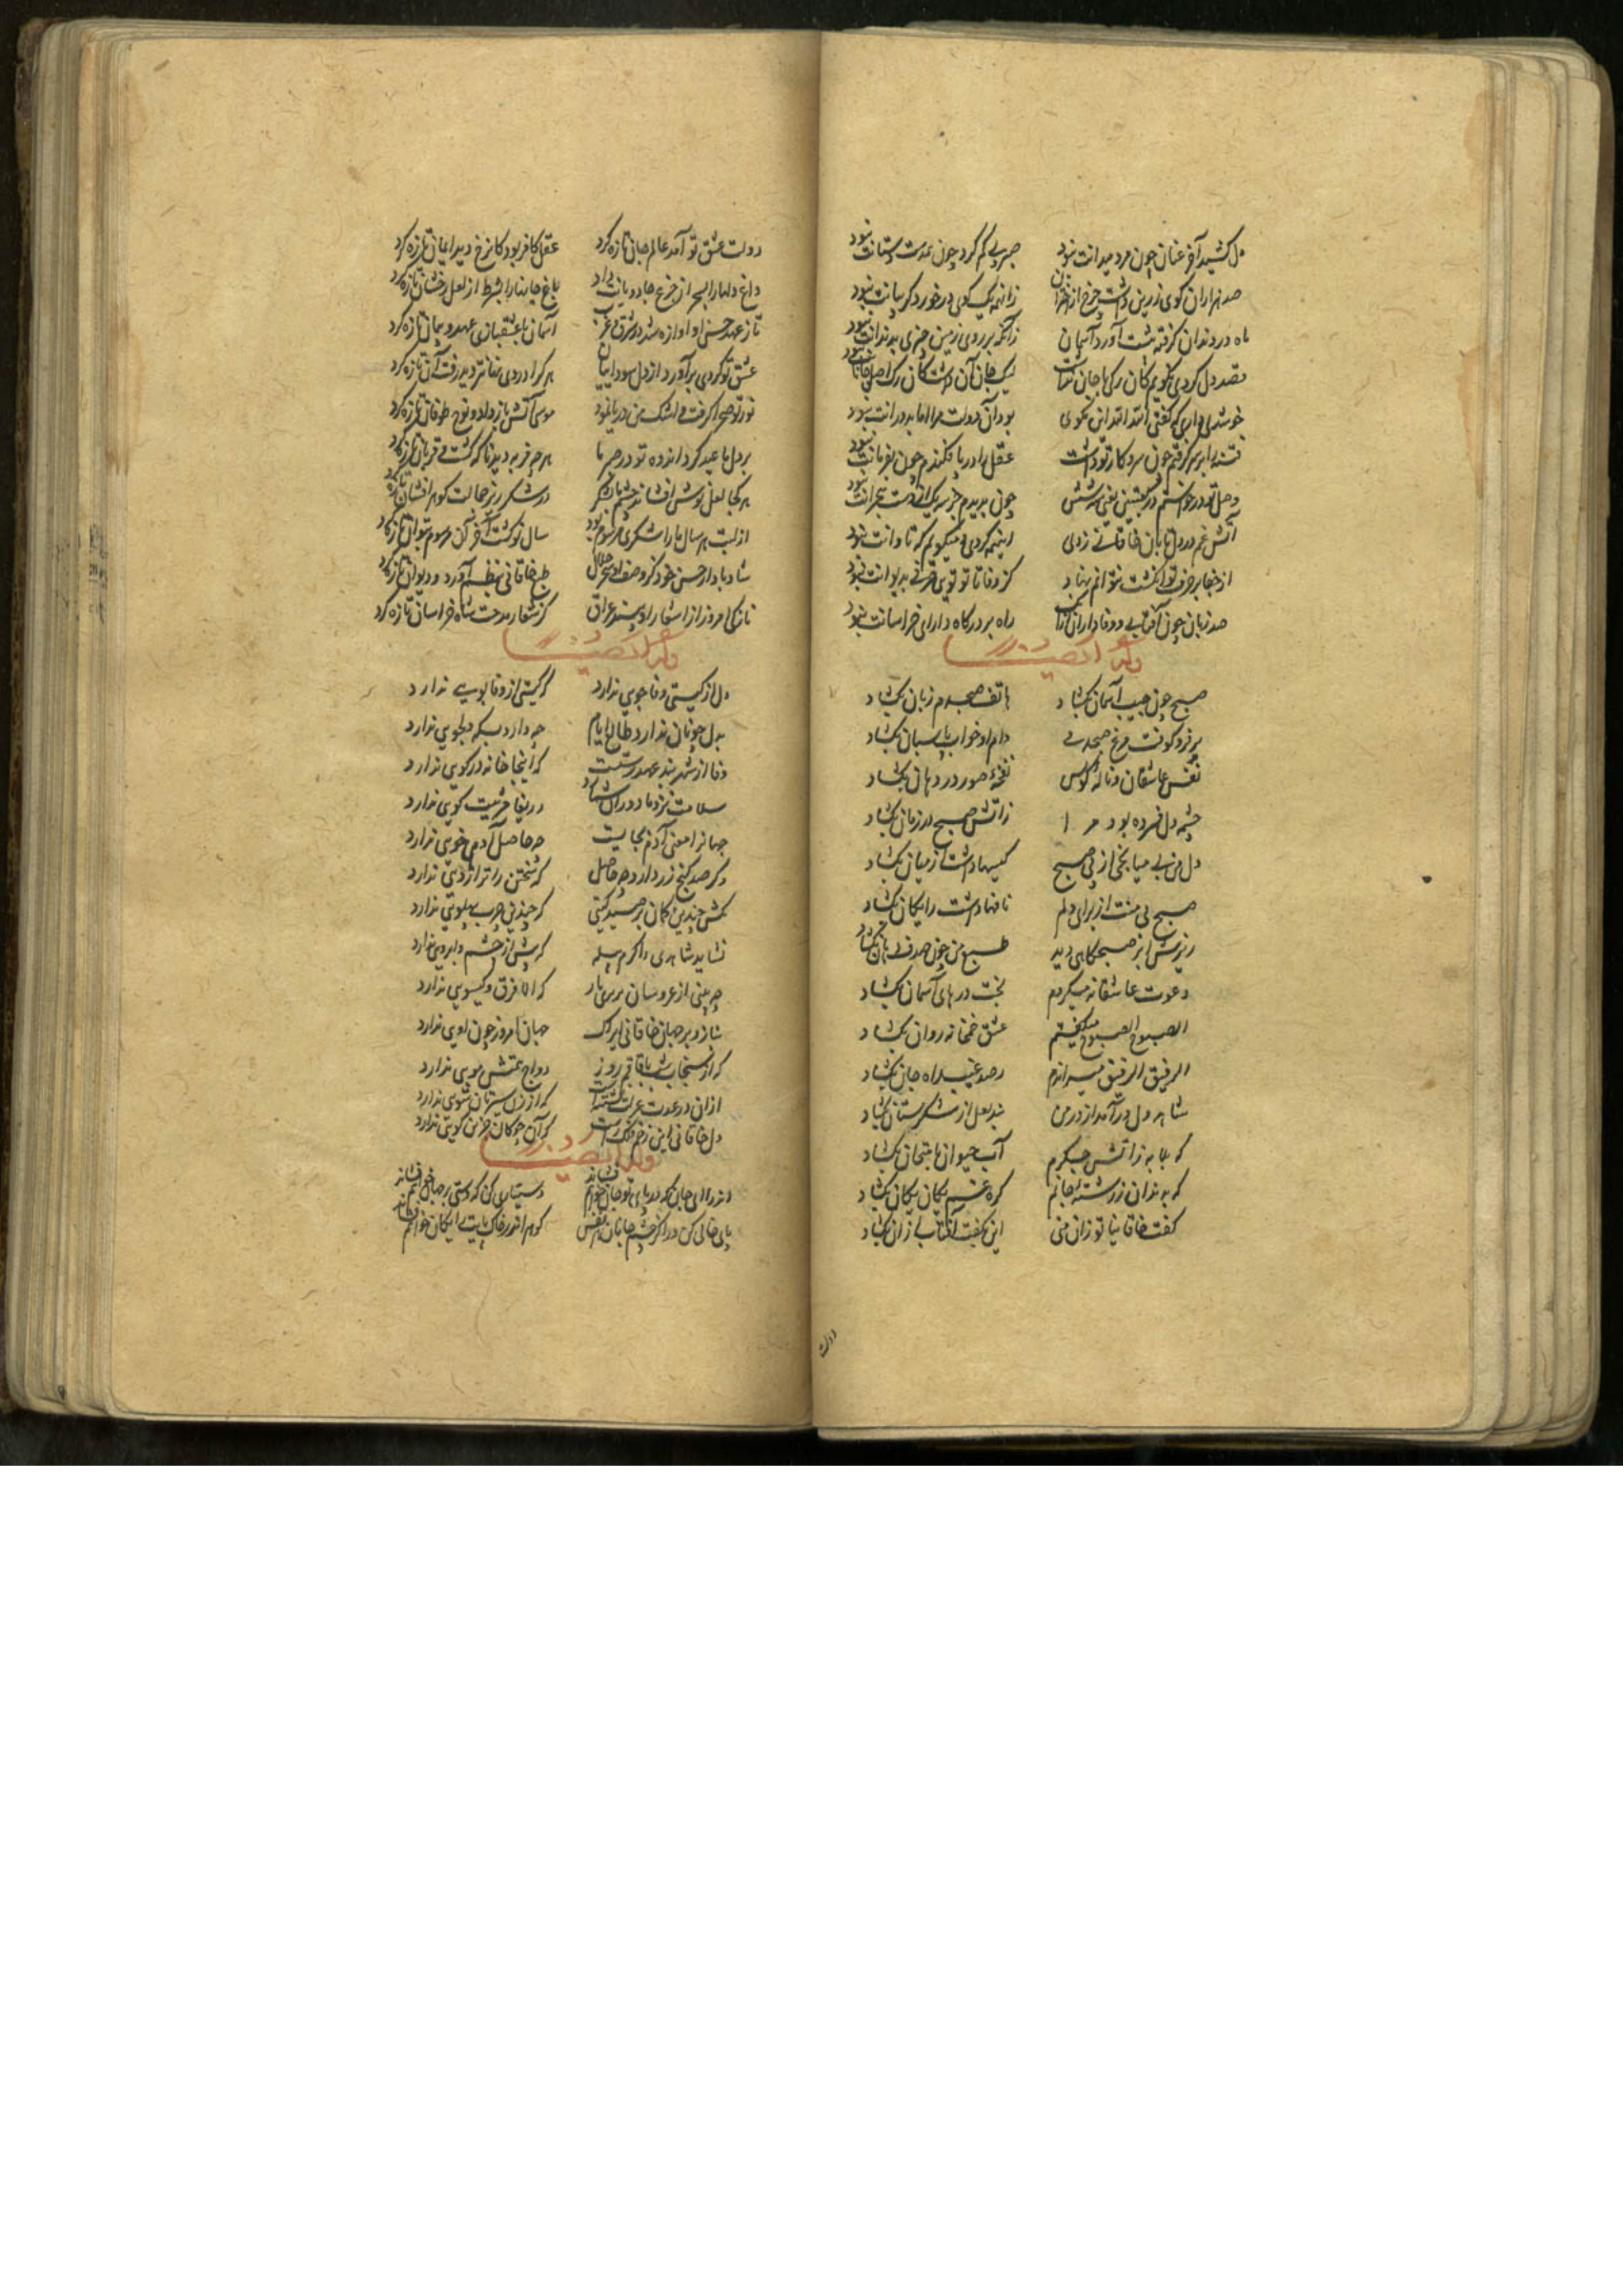 دل کشید آخر عنان چون مرد میدانت نبود
صبر پی گم کرد چون همدست دستانت نبود
صد هزاران گوی زرین داشت چرخ از اختران
زانهمه یک گوی در خورد گریبانت نبود
ماه در دندان گرفته پیشت آورد آسمان
زانکه بر روی زمین چیزی بدندانت نبود
قصد دل کردی نگویم کان رگی با جان نداشت
لیک جان آن داشت کان رگ با جانت نبود
بود آن دولت مرا اما بدورانت نبود
فتنه را بر سر گرفتم چون سر و کار تو داشت
عقل را در پا فکندم چون بفرمانت نبود
وصل تو درخواستم از کعبتین یعنی سه شش
چون بدیدم جز سه یک از دست هجرانت نبود
آتش غم در دل تابان خاقانی زدی
اینهمه کردی و میگویم که تاوانت نبود
از جفا بر حرف تو انگشت نتوانم نهاد
کز وفا تا تو توی حرفی بدیوانت نبود
صد زبان چون آفتابی در وفاداران
راه بر درگاه دارای خراسانت نبود
صبح چون جیب آسمان بگشاد
هاتف صبحدم زبان بگشاد
پر فرو کوفت مرغ صبحدمی
دام او خواب پاسبان بگشاد
نفس عاشقان و ناله کوس
نفخه صور در دهان بگشاد
چشمه دل فسرده بود مرا
زآتش صبح در زمان بگشاد
دل من بی میانجی از پی صبح
کیسها داشت از میان بگشاد
صبح بی منت از برای دلم
نافها داشت رایگان بگشاد
ریزش ابر صبحگاهی دید
طبع من چون صدف دهان بگشاد
دعوت عاشقانه میکردم
بخت درهای آسمان بگشاد
الصبوح الصبوح میگفتم
عشق خمخانه روان بگشاد
الرفیق الرفیق میراندم
رصد غیب راه جان بگشاد
شاهد دل درآمد از در من
بند لعل از شکرستان بگشاد
که بلابه زآتش جگرم
آب حیوان بامتحان بگشاد
که بدندان ز رشته جانم
گره غم یکان یکان بگشاد
گفت خاقانیا تو زان منی
این بگفت آفتاب از ان بگشاد
دولت
دولت عشق تو آمد عالم جان تازه کرد
عقل کافر بود کان رخ دید ایمان تازه کرد
داغ دلها را بسحر از جزع جادو باب داد
باغ جانها را بشرط از لعل رخشان تازه کرد
تا ز عهد حسن او آوازه شد در شرق و غرب
آسمان با عشقبازی عهد و پیمان تازه کرد
عشق نو گردی برآورد از دل سوداییان
هر کرا دردی بغایت دید رفت آن تازه کرد
نور تو صحرا گرفت و اشک من دریا نمود
موسی آتش باز داد و نوح طوفان تازه کرد
بر دل ما عید کرد اندوه تو در صبر ما
هر چه فربه دید ناگه کشت و قربان تازه کرد
هر کجا لعل تو نوش افشاند چشم ما بشکر
در شکر ریز جمالت گوهر افشان تازه کرد
از لبت هر سال ما را شکری مرسوم بود
سال نو گشت آخر آن مرسوم بتوان تازه کرد
شاد باد از حسن خود کز وصف او سحر حلال
طبع خاقانی بنظم آورد و دیوان تازه کرد
تازگی امروز از اشعار او بیند عراق
کز شعار مدحت شاه خراسان تازه کرد
دل از گیتی وفاجویی ندارد
که گیتی از وفا بویی ندارد
بدل چونان ندارد طالع ایام
چه دارد بسکه دلجویی ندارد
وفا از شهر بند عهد رستست
که اینجا خانه در کویی ندارد
سلامت نزد ما دور از شما مرد
دریغا مرثیت گویی ندارد
جهان را معنی آدم بجایست
چه حاصل آدمی خویی ندارد
وگر صد گنج زر دارد چه حاصل
که سختن را ترازویی ندارد
مکش چندین کمان بر صید گیتی
که چندین چرب پهلویی ندارد
نشاید شاهدی را کرم پیله
که پیش از چشم و ابرویی ندارد
چه بینی از عروسان بربری ناز
که الا فرق و گیسویی ندارد
بنازد بر جهان خاقانی ایراک
جهان امروز چون اویی ندارد
که از سنجاب شب تا قاقم روز
دواج همتش مویی ندارد
از ان در عدت عزلت نشستست
که از زن سیرتان شویی ندارد
دل خاقانی این زخم فلک راست
که آن چوگان جز این گویی ندارد